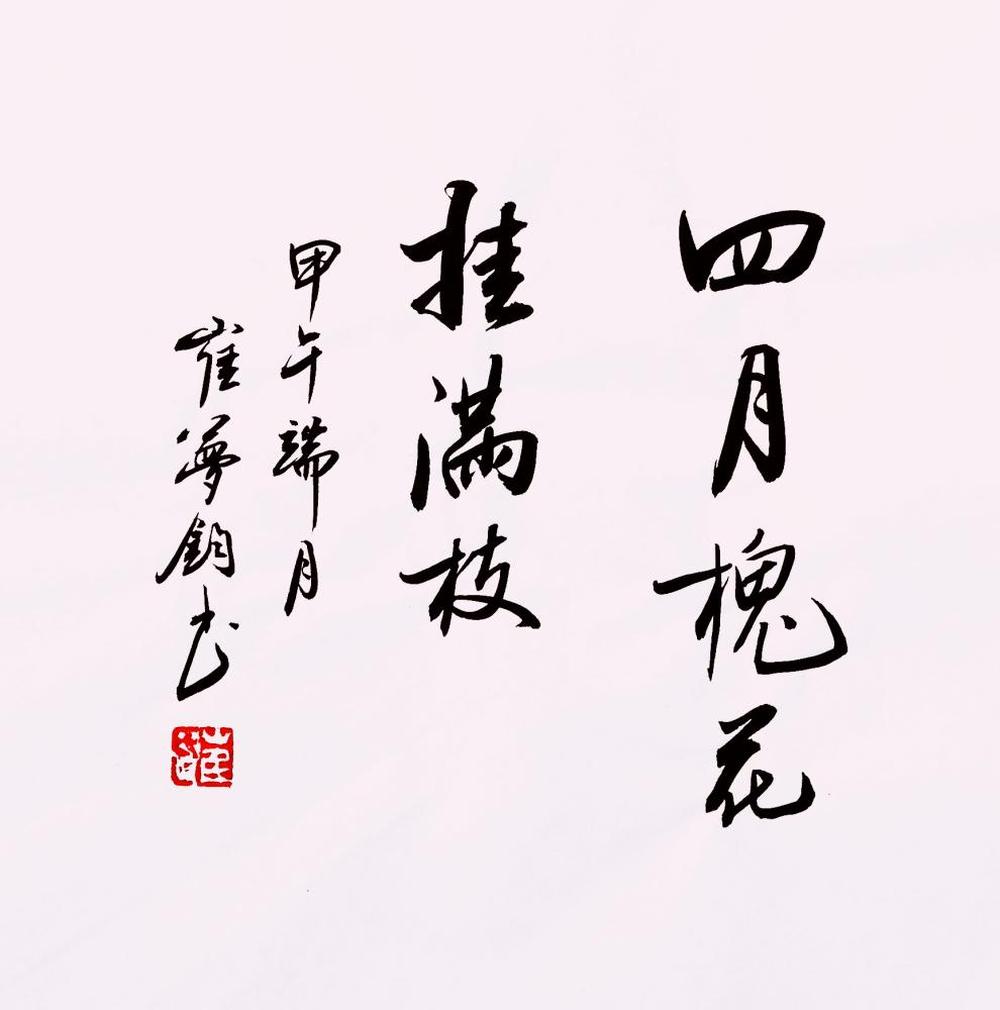 四月槐花
挂满枝
甲午端月
崔夢鈞书